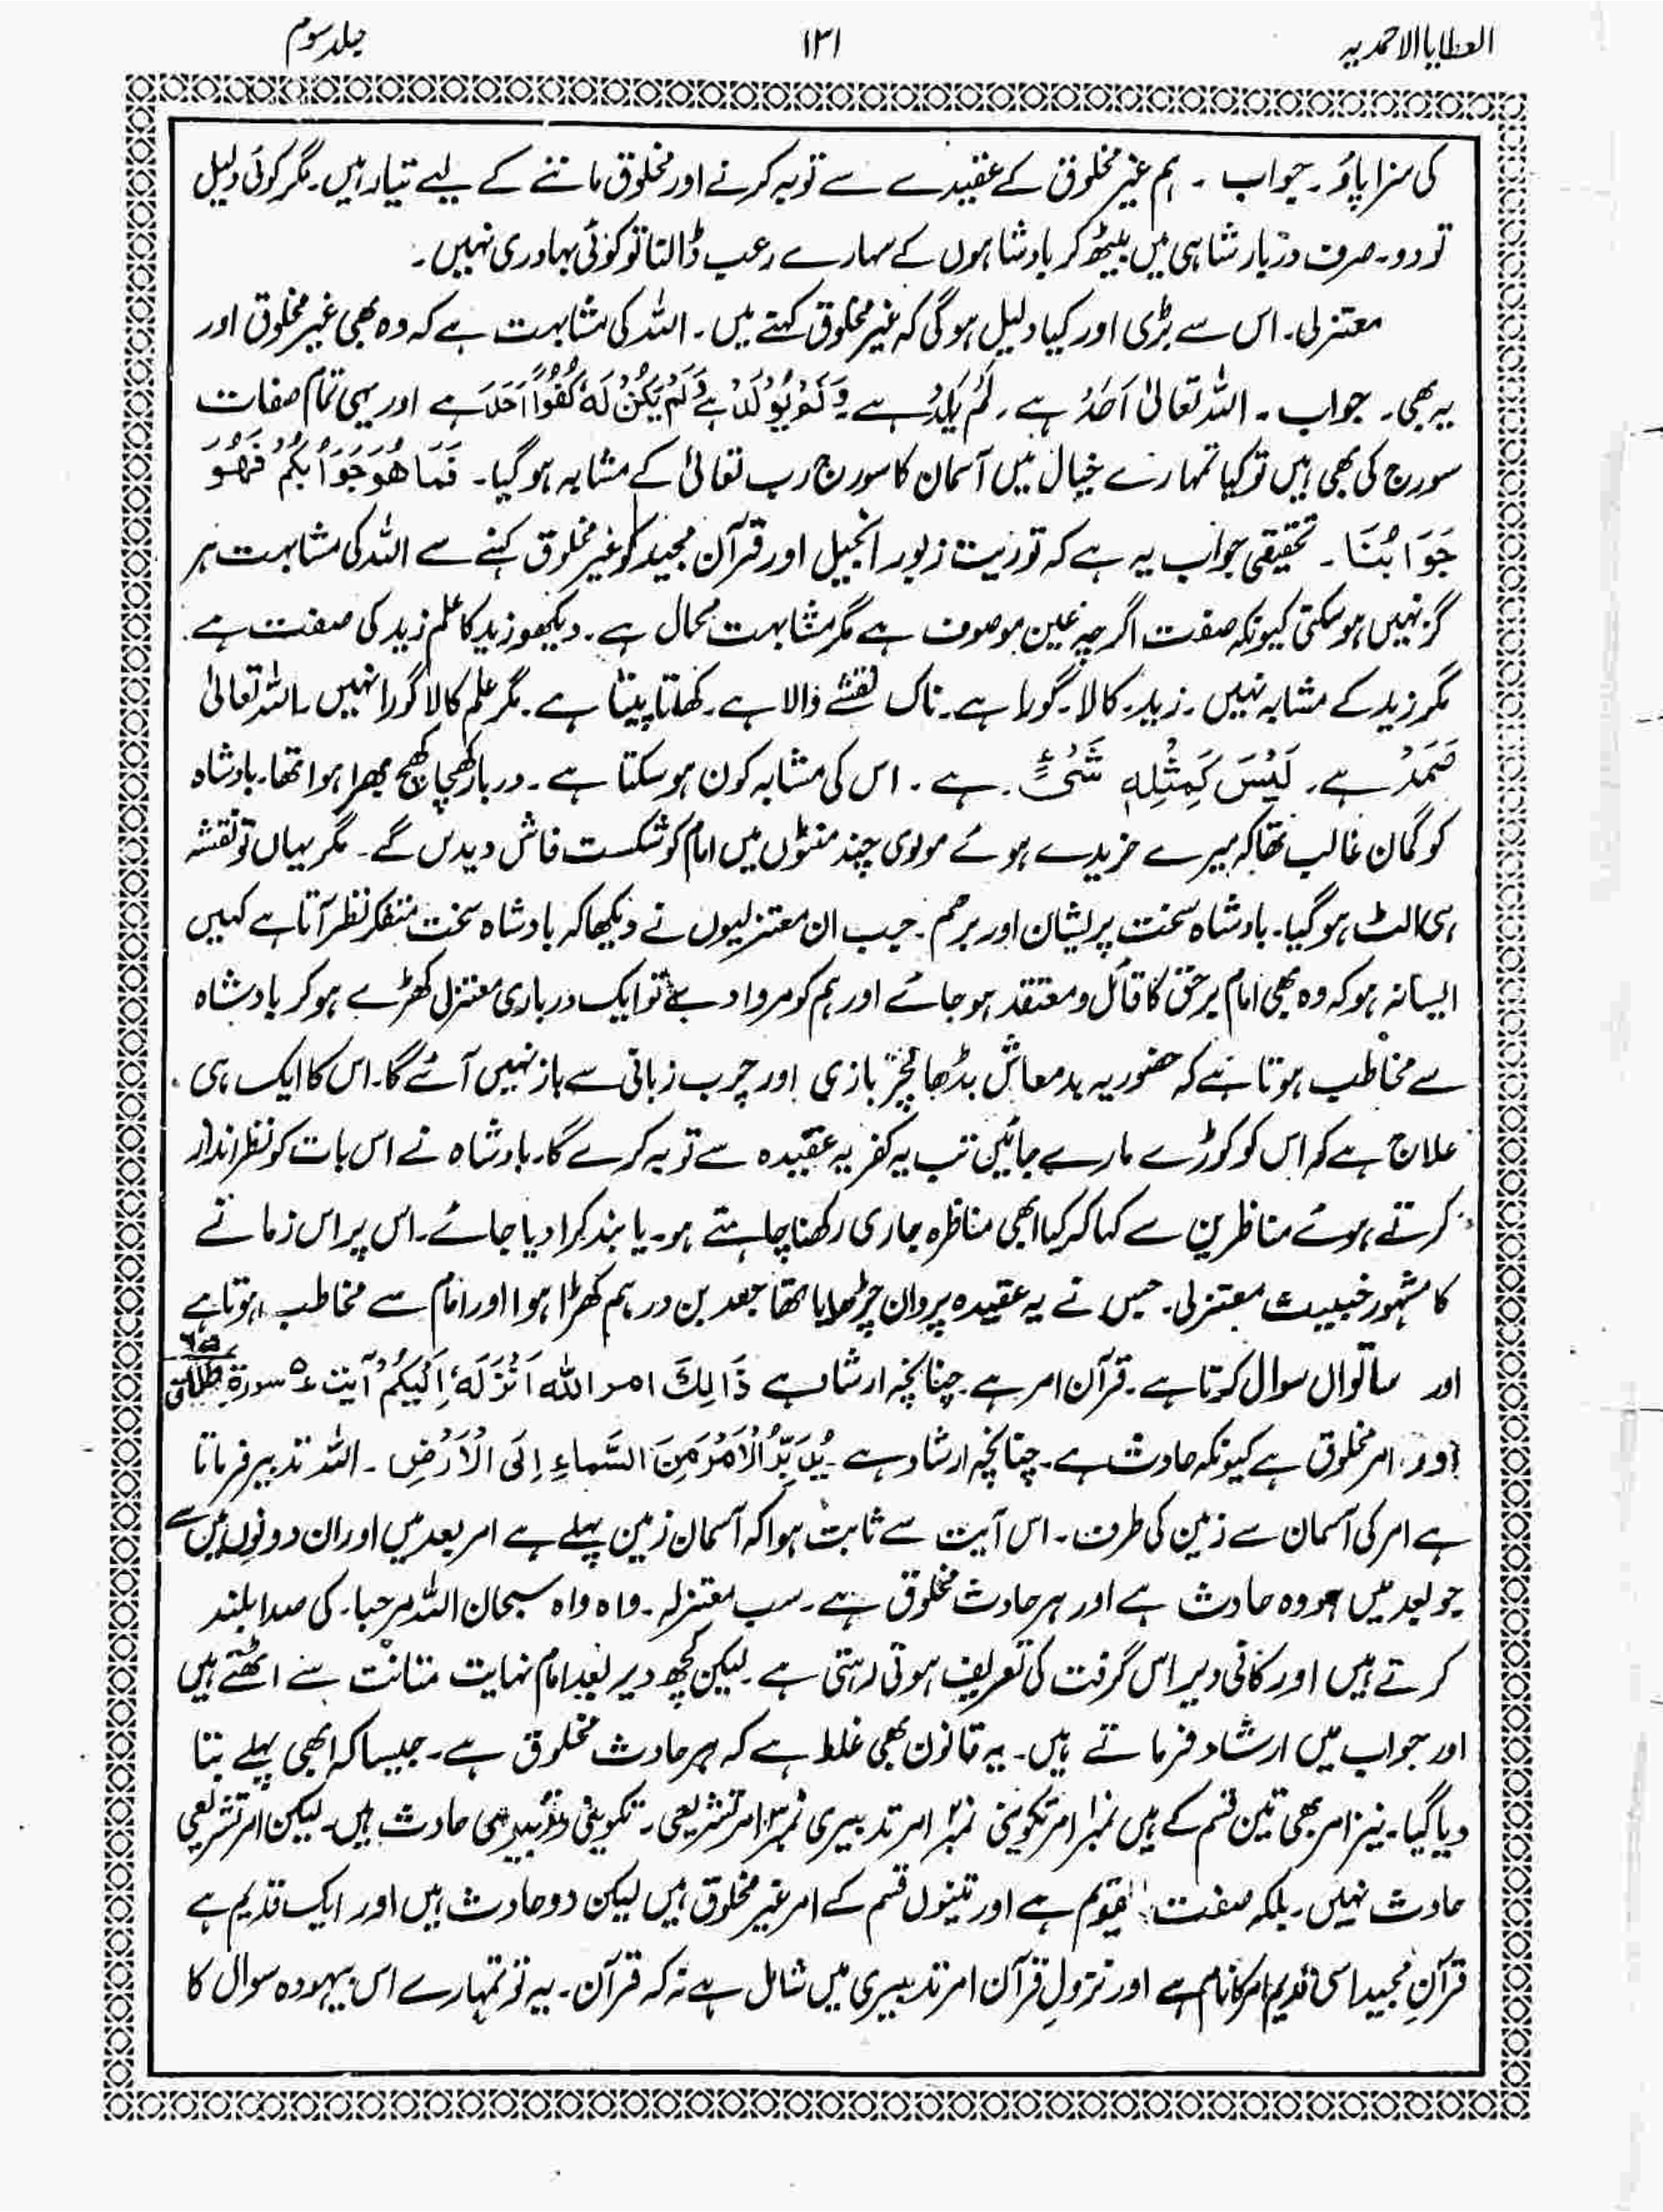 العطایا الاحمدیہ ۱۳۱ جلد سوم
کی سزا پاؤ ۔ جواب ۔ ہم غیر مخلوق کے عقیدے سے توبہ کرنے اور مخلوق ماننے کے لیے تیار ہیں ۔ مگر کوئی دلیل
تو دو ۔ صرف دربار شاہی میں بیٹھ کر بادشاہوں کے سہارے رعب ڈالنا تو کوئی بہادری نہیں ۔
معتزلی ۔ اس سے بڑی اور کیا دلیل ہو گی کہ غیر مخلوق کہتے ہیں ۔ اللہ کی مشابہت ہے کہ وہ بھی غیر مخلوق اور
یہ بھی ۔ جواب ۔ اللہ تعالیٰ اَحَدٌ ہے ۔ لَمْ یَلِدْ ہے وَلَمْ یُوْلَدْ ہے وَلَمْ یَکُنْ لَّهٗ کُفُوًا اَحَدْ ہے اور یہی تمام صفات
سورج کی بھی ہیں تو کیا تمہارے خیال میں آسمان کا سورج رب تعالیٰ کے مشابہ ہو گیا ۔ فَمَا هُوَ جَوَابُکُمْ فَهُوَ
جَوَابُنَا ۔ تحقیقی جواب یہ ہے کہ توریت زبور انجیل اور قرآن مجید کو غیر مخلوق کہنے سے اللہ کی مشابہت ہر
گز نہیں ہو سکتی کیونکہ صفت اگرچہ عین موصوف ہے مگر مشابہت محال ہے ۔ دیکھو زید کا علم زید کی صفت ہے ۔
مگر زید کے مشابہ نہیں ۔ زید ۔ کالا ۔ گورا ہے ۔ ناک نقشے والا ہے ۔ کھاتا پیتا ہے ۔ مگر علم کالا گورا نہیں ۔ اللہ تعالیٰ
صَمَدٌ ہے ۔ لَیْسَ کَمِثْلِهٖ شَیْءٌ ۔ ہے ۔ اس کی مشابہ کون ہو سکتا ہے ۔ دربار کھچا کھچ بھرا ہوا تھا ۔ بادشاہ
کو گمان غالب تھا کہ میرے خریدے ہوئے مولوی چند منٹوں میں امام کو شکست فاش دیدیں گے ۔ مگر یہاں تو نقشہ
ہی الٹ ہو گیا ۔ بادشاہ سخت پریشان اور برہم ۔ جب ان معتزلیوں نے دیکھا کہ بادشاہ سخت متفکر نظر آتا ہے کہیں
ایسا نہ ہو کہ وہ بھی امام برحق کا قائل و معتقد ہو جائے اور ہم کو مروا دے تو ایک درباری معتزلی کھڑے ہو کر بادشاہ
سے مخاطب ہوتا ہے کہ حضور یہ بدمعاش بڈھا لچر بازی اور چرب زبانی سے باز نہیں آئے گا ۔ اس کا ایک ہی
علاج ہے کہ اس کو کوڑے مارے جائیں تب یہ کفریہ عقیدہ سے توبہ کرے گا ۔ بادشاہ نے اس بات کو نظر انداز
کرتے ہوئے مناظرین سے کہا کہ کیا ابھی مناظرہ جاری رکھنا چاہتے ہو ۔ یا بند کرا دیا جائے ۔ اس پر اس زمانے
کا مشہور خبیث معتزلی ۔ جس نے یہ عقیدہ پروان چڑھایا تھا جعد بن درہم کھڑا ہوا اور امام سے مخاطب ہوتا ہے
اور ساتواں سوال کرتا ہے ۔ قرآن امر ہے ۔ چنانچہ ارشاد ہے ذَالِکَ امر اللّٰه اَنْزَلَهٗ اِلَیْکُمْ آیت ۵ سورۃ طلاق
اور امر مخلوق ہے کیونکہ حادث ہے ۔ چنانچہ ارشاد ہے ۔ یُدَبِّرُ الْاَمْرَ مِنَ السَّمَاءِ اِلَی الْاَرْضِ ۔ اللہ تدبیر فرماتا
ہے امر کی آسمان سے زمین کی طرف ۔ اس آیت سے ثابت ہوا کہ آسمان زمین پہلے ہے امر بعد میں اور ان دونوں میں سے
جو بعد میں ہو وہ حادث ہے اور ہر حادث مخلوق ہے ۔ سب معتزلہ ۔ واہ واہ سبحان اللہ مرحبا ۔ کی صدا بلند
کرتے ہیں اور کافی دیر اس گرفت کی تعریف ہوتی رہتی ہے ۔ لیکن کچھ دیر بعد امام نہایت متانت سے اٹھتے ہیں
اور جواب میں ارشاد فرماتے ہیں ۔ یہ قانون بھی غلط ہے کہ ہر حادث مخلوق ہے ۔ جیسا کہ ابھی پہلے بتا
دیا گیا ۔ نیز امر بھی تین قسم کے ہیں نمبر۱ امر تکوینی نمبر۲ امر تدبیری نمبر۳ امر تشریعی ۔ تکوینی و تدبیری حادث ہیں ۔ لیکن امر تشریعی
حادث نہیں ۔ بلکہ صفت قیوم ہے اور تینوں قسم کے امر غیر مخلوق ہیں لیکن دو حادث ہیں اور ایک قدیم ہے
قرآنِ مجید اسی قدیم امر کا نام ہے اور نزولِ قرآن امر تدبیری میں شامل ہے نہ کہ قرآن ۔ یہ تو تمہارے اس بیہودہ سوال کا